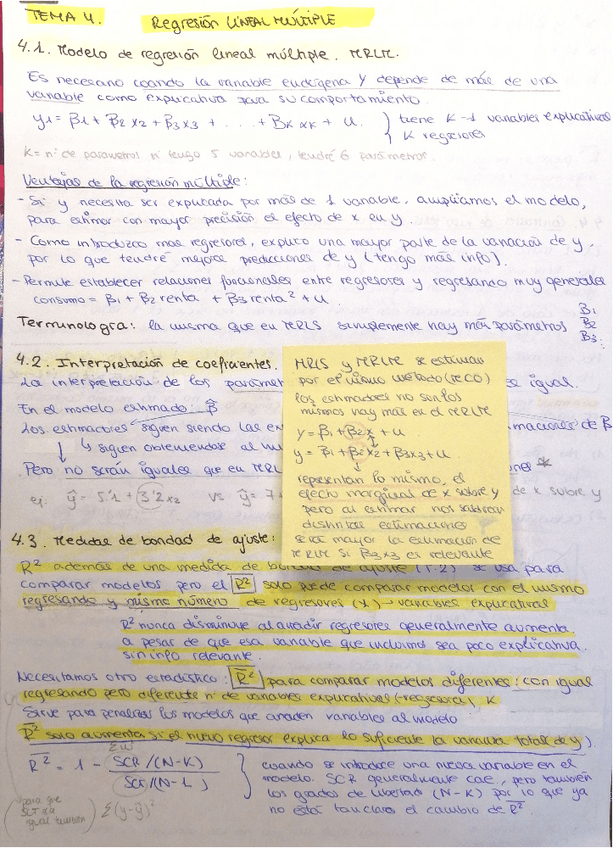 TEMA 4. Regresión LINEAL MÚLTIPLE
4.1. Modelo de regresión lineal múltiple. MRLM.
Es necesario cuando la variable endógena Y depende de más de una
variable como explicativa para su comportamiento.
y1 = β1 + β2 x2 + β3 x3 + . . . + βK xK + u. } tiene K-1 variables explicativas
K regresores
K = nº de parametros si tengo 5 variables, tendré 6 parámetros.
Ventajas de la regresión múltiple:
- Si y necesita ser explicada por más de 1 variable, ampliamos el modelo,
para estimar con mayor precisión el efecto de x en y.
- Como introduzco más regresores, explico una mayor parte de la variación de y,
por lo que tendré mejores predicciones de y (tengo más info).
- Permite establecer relaciones funcionales entre regresores y regresando muy generales
consumo = β1 + β2 renta + β3 renta² + u
Terminología: la misma que en MRLS simplemente hay más parámetros β1
β2
β3
4.2. Interpretación de coeficientes.
La interpretación de los parámet se igual.
En el modelo estimado: β̂
Los estimadores siguen siendo las ex maciones de β
↳ siguen obteniendose al
Pero no serán iguales que en MRL ones *
ej: ŷ = 5'1 + 3'2 x2 vs ŷ = 7 de x sobre y
MRLS y MRLM se estiman
por el mismo método (MCO)
los estimadores no son los
mismos hay más en el MRLM
y = β1 + β2 x + u
y = β1 + β2 x + β3 x3 + u.
representan lo mismo, el
efecto marginal de x sobre y
pero al estimar nos saldran
distintas estimaciones
será mayor la estimación de
MRLM si β3 x3 es relevante
4.3. Medidas de bondad de ajuste:
R² además de una medida de bondad de ajuste (T-2) se usa para
comparar modelos pero el R² solo puede comparar modelos con el mismo
regresando y mismo número de regresores (x) → variables explicativas
R² nunca disminuye al añadir regresores generalmente aumenta
a pesar de que esa variable que incluimos sea poco explicativa
sin info relevante.
Necesitamos otro estadístico: R̄² para comparar modelos diferentes: con igual
regresando pero diferente nº de variables explicativas (-regresora), K
Sirve para penalizar los modelos que añaden variables al modelo
R̄² solo aumenta si el nuevo regresor explica lo suficiente la varianza total de y)
R̄² = 1 - SCR/(N-K)
SCT/(N-1)
Σû²
Σ(y-ȳ)²
cuando se introduce una nueva variable en el
modelo. SCR generalmente cae, pero también
los grados de libertad (N-K) por lo que ya
no está tan claro el cambio de R̄²
para que
igual también